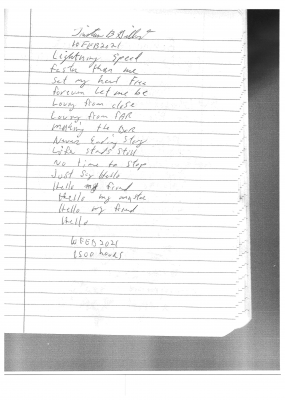 10 FEB 2021
Lightning Speed
Faster than me
Set my heart Free
Forever Let me be
Loving from close
Loving from FAR
Making the
Never Ending Story
Life stands still
No time to stop
Just Say Hello
Hello my friend
Hello my
Hello my friend
Hello
10 FEB 2021
1500 hours